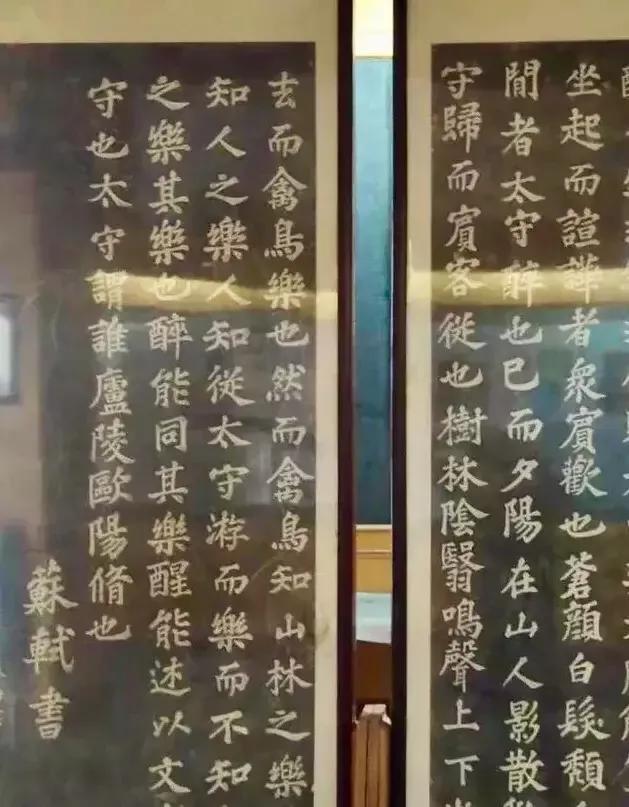 坐起而諠譁者衆賓歡也蒼顏白髮頹
間者太守醉也已而夕陽在山人影散
守歸而賓客從也樹林陰翳鳴聲上下
去而禽鳥樂也然而禽鳥知山林之樂
知人之樂人知從太守游而樂而不知
之樂其樂也醉能同其樂醒能述以文
守也太守謂誰廬陵歐陽脩也
蘇軾書